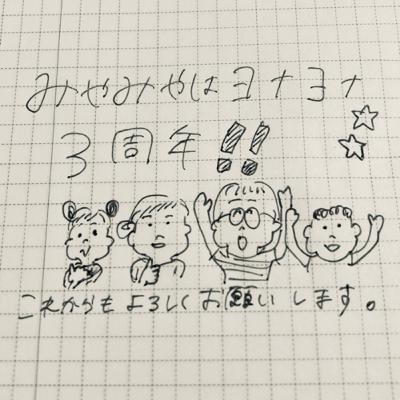 みやみやはヨナヨナ
3周年!!
これからもよろしくお願いします。